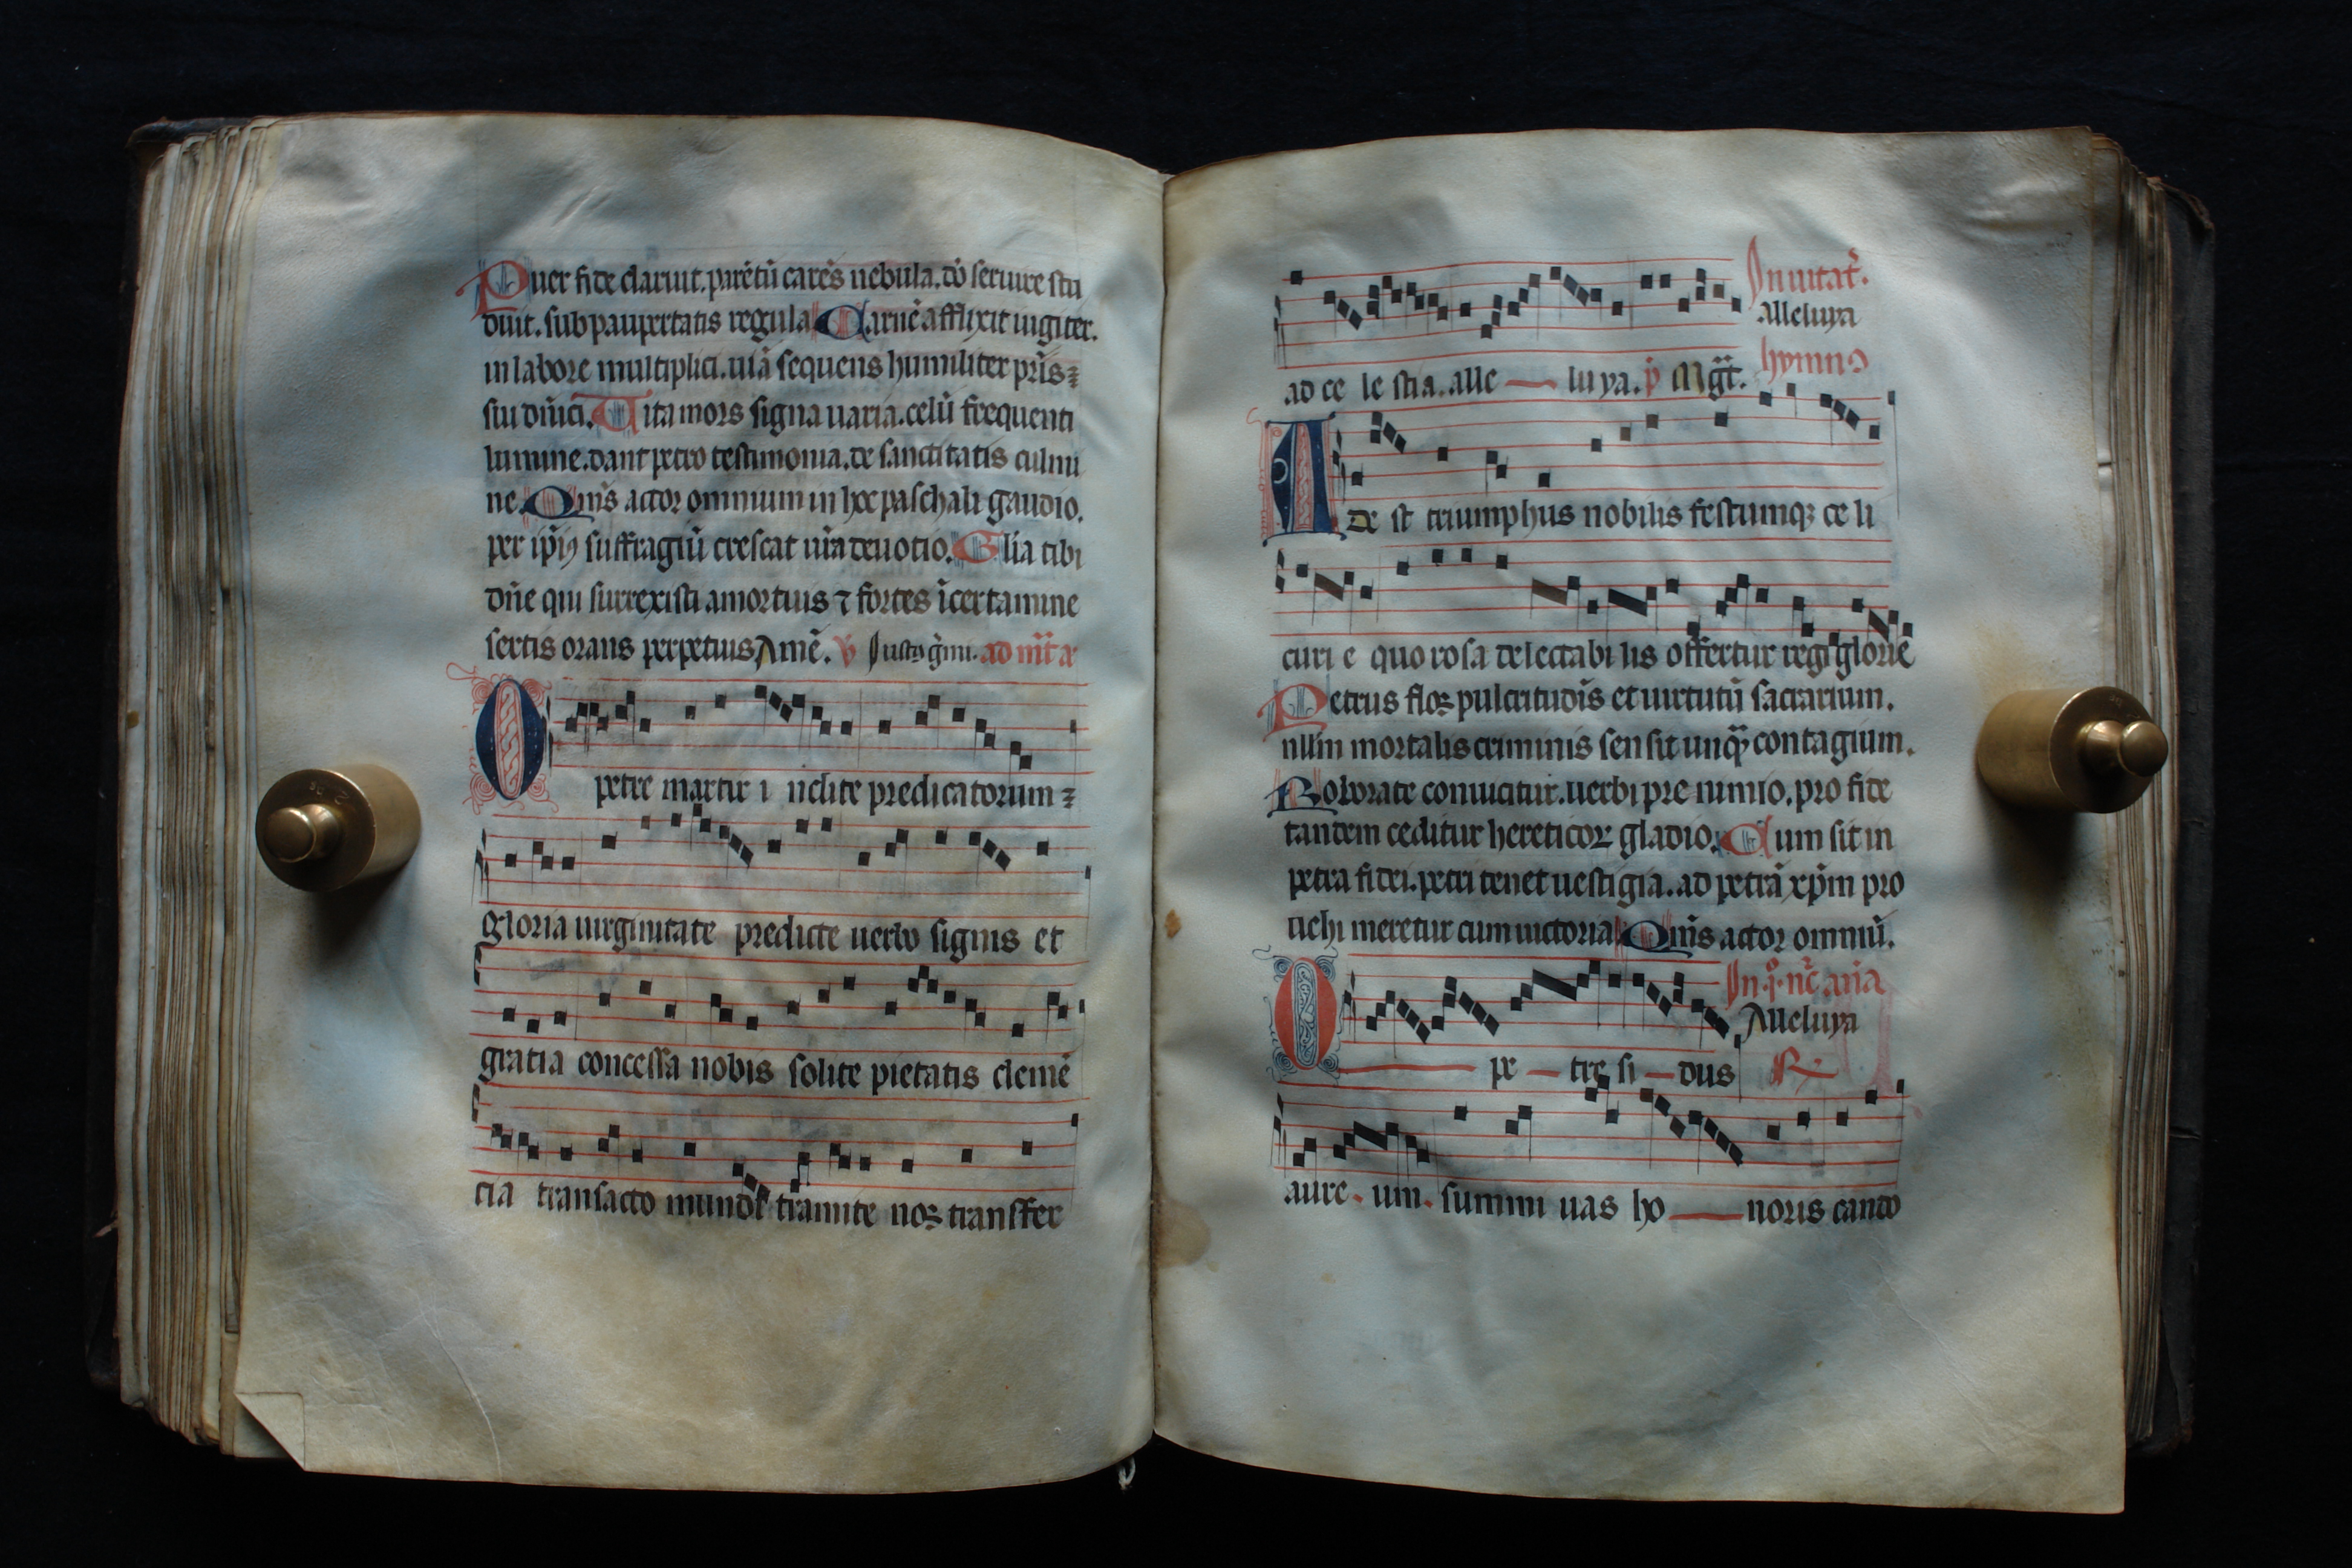 Puer fide claruit. parẽtũ carẽs nebula. dõ seruire stu
duit. sub paupertatis regula Carnẽ afflixit iugiter.
in labore multiplici. uiã sequens humiliter pr̃is ⁊
siu dñici. Uita mors signa uaria. celũ frequenti
lumine. dant petro testimonia. de sanctitatis culmi
ne. Qm̃s actor omnium in hoc paschali gaudio.
per ip̃ius suffragiũ crescat nr̃a deuotio. Gl̃ia tibi
dñe qui surrexisti a mortuis ⁊ fortes ĩ certamine
sertis orans perpetuis Amẽ. ỹ Iustus g̃mi. ad
O petre martir i nclite predicatorum ⁊
gloria uirginitate predicte uerbo signis et
gratia concessa nobis solite pietatis clemẽ
cia transacto mundi tramite nos transfer
ad ce le stia. alle — lu ya. p̃ Mg̃t.
Inuitat̃.
Alleluya
hymnꝰ
A de st triumphus nobilis festumqꝫ ce li
curi e quo rosa delectabi lis offertur regi glorie
Petrus flos pulcritudĩs et uirtutũ sacrarium.
nlliꝰ mortalis criminis sensit unq̃ contagium.
Roborate conuicitur. uerbi pre nimio. pro fide
tandem ceditur hereticoꝝ gladio. Cum sit in
petra fidei. petri tenet uestigia. ad petrã xp̃m pro
uehi meretur cum uictoria Qm̃s actor omniũ.
In .p̊. nc̃. añã
Alleluya
O — pe — tre si — dus ℞
aure - um. summi uas ho — noris cando